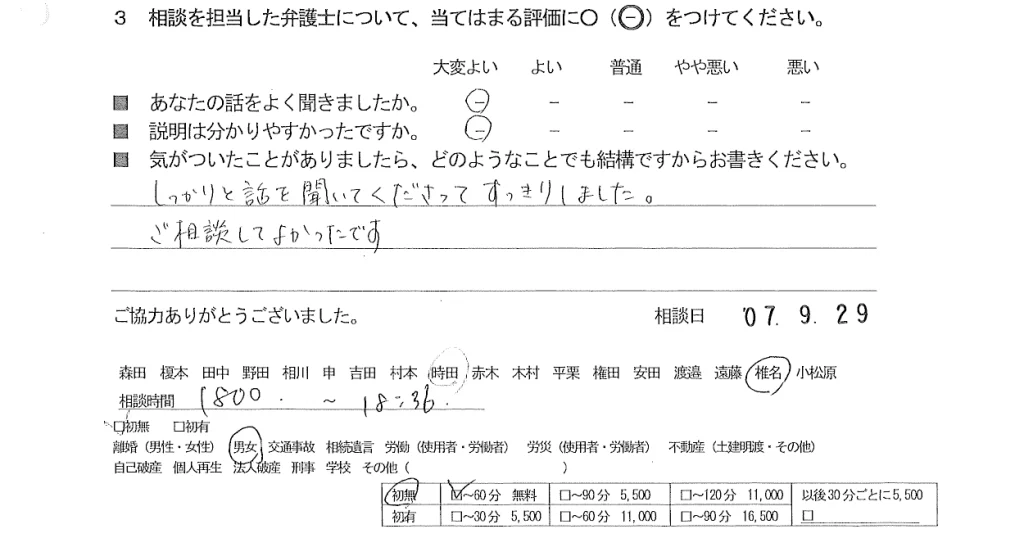 3 相談を担当した弁護士について、当てはまる評価に○(㊀)をつけてください。
大変よい よい 普通 やや悪い 悪い
■ あなたの話をよく聞きましたか。 － － － － －
■ 説明は分かりやすかったですか。 － － － － －
■ 気がついたことがありましたら、どのようなことでも結構ですからお書きください。
しっかりと話を聞いてくださってすっきりしました。
ご相談してよかったです
ご協力ありがとうございました。 相談日 '07. 9. 29
森田 榎本 田中 野田 相川 申 吉田 村本 時田 赤木 木村 平栗 権田 安田 渡邉 遠藤 椎名 小松原
相談時間 1800 . ～ 18:36.
□初無 □初有
離婚(男性・女性) 男女 交通事故 相続遺言 労働(使用者・労働者) 労災(使用者・労働者) 不動産(土建明渡・その他)
自己破産 個人再生 法人破産 刑事 学校 その他( )
初無 ☑～60分 無料 □～90分 5,500 □～120分 11,000 以後30分ごとに5,500
初有 □～30分 5,500 □～60分 11,000 □～90分 16,500 □